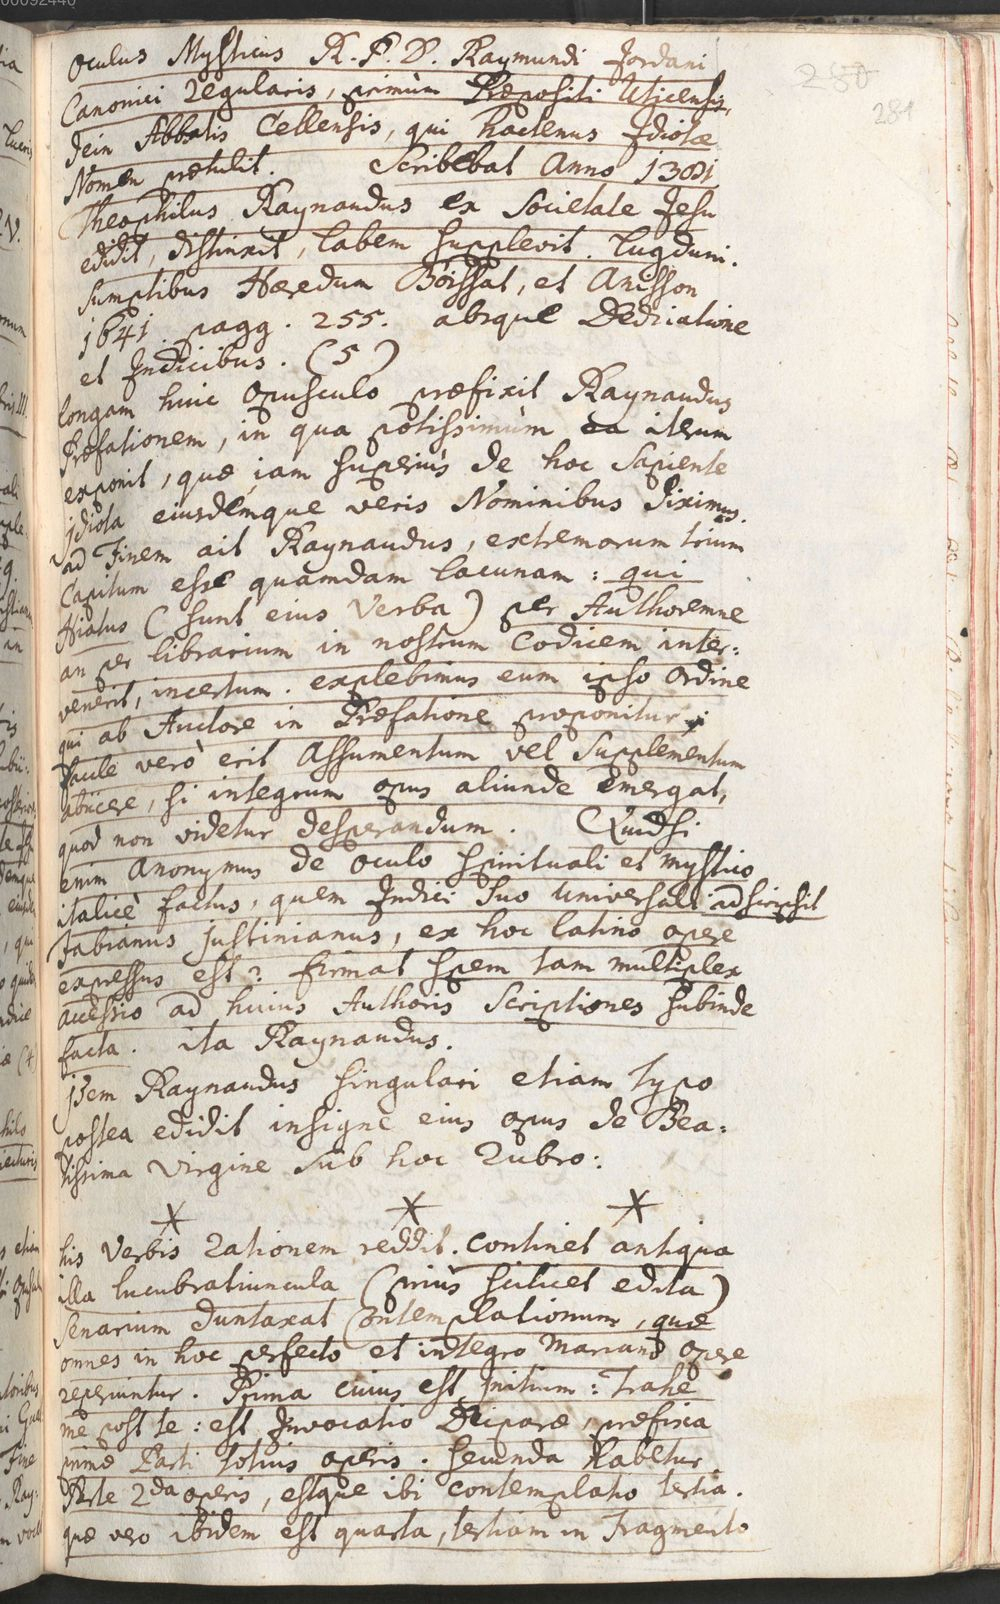 00092440
250
281
Oculus Mysticus R. P. D. Raymundi Jordani
Canonici Regularis, primùm Præpositi Uticensis,
dein Abbatis Cellensis, qui hactenus Idiotæ
Nomen prætulit. Scribebat Anno 1381
Theophilus Raynaudus ex Societate Jesu
edidit, distinxit, labem supplevit. Lugduni.
Sumptibus Hæredum Boissat, et Anisson
1641. pagg. 255. absque Dedicatione
et Indicibus. (5)
longam huic Opusculo præfixit Raynaudus
Præfationem, in qua potissimùm ea iterum
exponit, quæ iam superiùs de hoc Sapiente
jdiota eiusdémque veris Nominibus diximus.
ad Finem ait Raynaudus, extremorum trium
Capitum esse quamdam lacunam: qui
Hiatus (sunt eius Verba) per Authoremne
an per librarium in nostrum Codicem inter:
venerit, incertum. explebimus eum ipso Ordine
qui ab Auctore in Præfatione proponitur;
facile verò erit Assumentum vel Supplementum
abiicere, si integrum opus aliunde emergat,
quod non videtur desperandum. Quid si
enim Anonymus de Oculo spirituali et mystico
italicè factus, quem Indici suo universali adscripsit
Fabianus Justinianus, ex hoc latino opere
expressus est? firmat spem tam multiplex
accessio ad huius Authoris Scriptiones subinde
facta. ita Raynaudus.
jdem Raynaudus singulari etiam typo
postea edidit insigne eius opus de Bea:
tissima Virgine sub hoc Rubro:
* * *
his Verbis Rationem reddit. Continet antiqua
illa lucubratiuncula (priùs scilicet edita)
Senarium duntaxat Contemplationum, quæ
omnes in hoc perfecto et integro Mariano Opere
reperiuntur. Prima cuius est Initium: Trahe
me post te: est Invocatio Deiparæ, præfixa
primæ Parti totius operis. Secunda habetur
Parte 2da operis, estque ibi contemplatio tertia.
quæ vero ibidem est quarta, tertiam in Fragmento